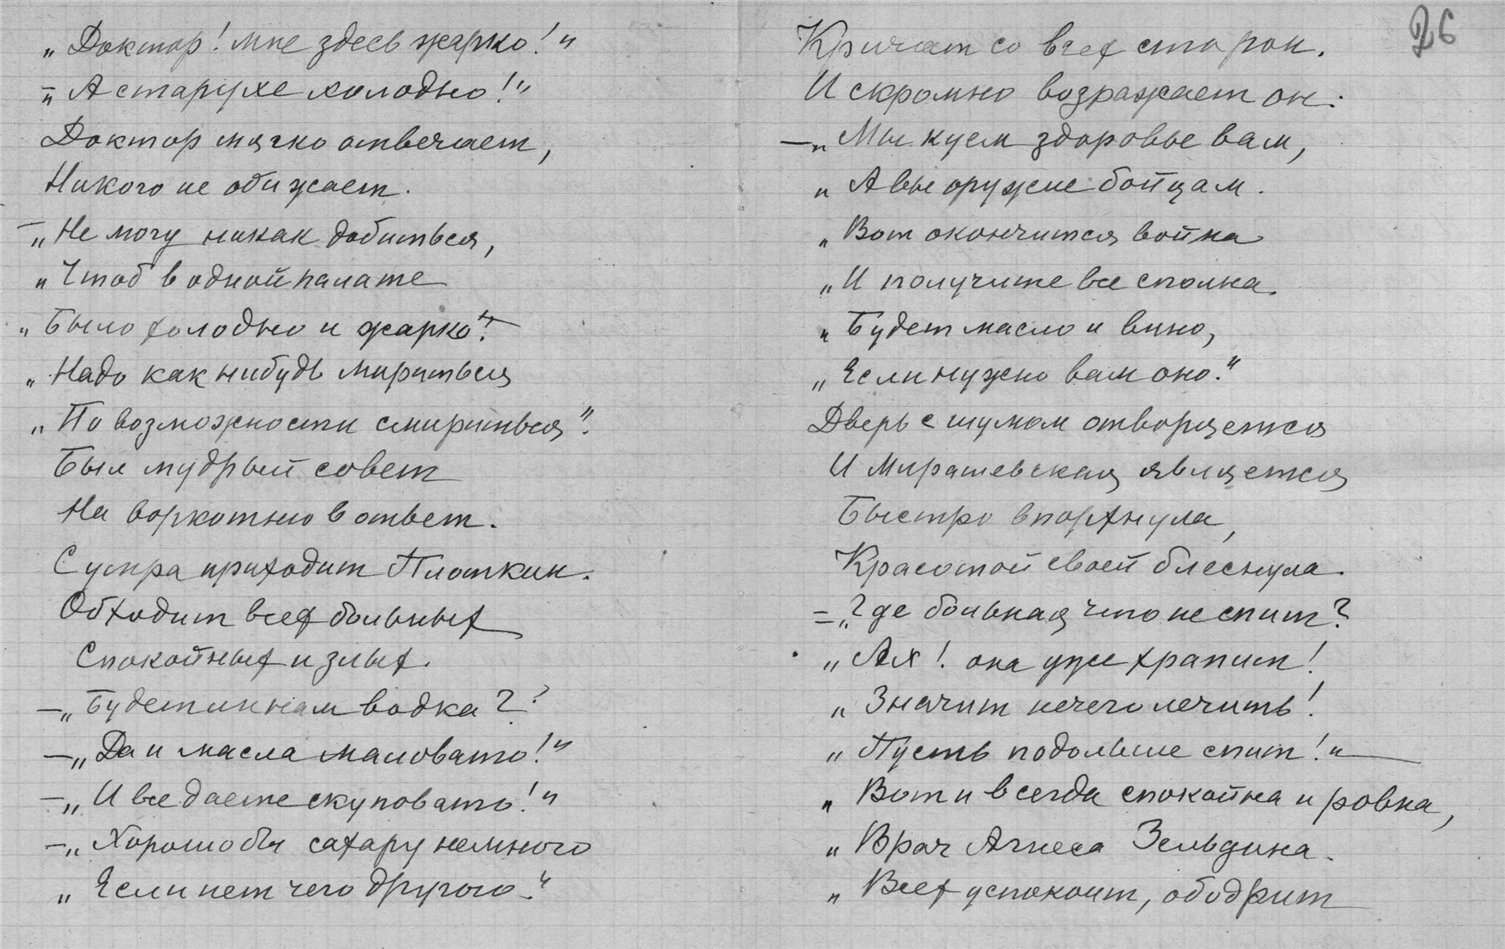 „Доктор! мне здесь жарко!“
–„А старухе холодно!“
Доктор мягко отвечает,
Никого не обижает.
–„Не могу никак добиться,
„Чтоб в одной палате
„Было холодно и жарко“.
„Надо как нибудь мириться
„По возможности смириться“.
Был мудрый совет
На воркотню в ответ.
С утра приходит Плоткин.
Обходит всех больных
Спокойных и злых.
–„Будет ли нам водка?“?
–„Да и масла маловато!“
–„И все даете скуповато!“
–„Хорошо бы сахару немного
„Если нет чего другого.“
26
Кричат со всех сторон.
И скромно возражает он:
–„Мы куем здоровье вам,
„А вы оружие бойцам.
„Вот окончится война
„И получите все сполна.
„Будет масло и вино,
„Если нужно вам оно.“
Дверь с шумом отворяется
И Мирашевская является
Быстро впорхнула,
Красотой своей блеснула.
=„Где больная, что не спит?
„Ах! она уже храпит!
„Значит нечего лечить!
„Пусть подольше спит!“
„Вот и всегда спокойна и ровна,
„Врач Агнеса Зельдина.
„Всех успокоит, ободрит